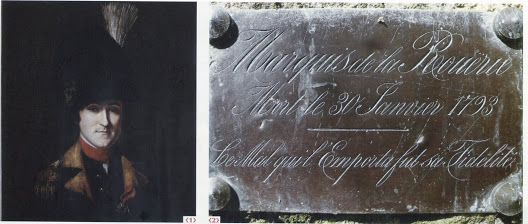 (1)
(2)
Marquis de la Rouerie
Mort le 30 Janvier 1793
Le Mal qui l'Emporta fut sa Fidélité